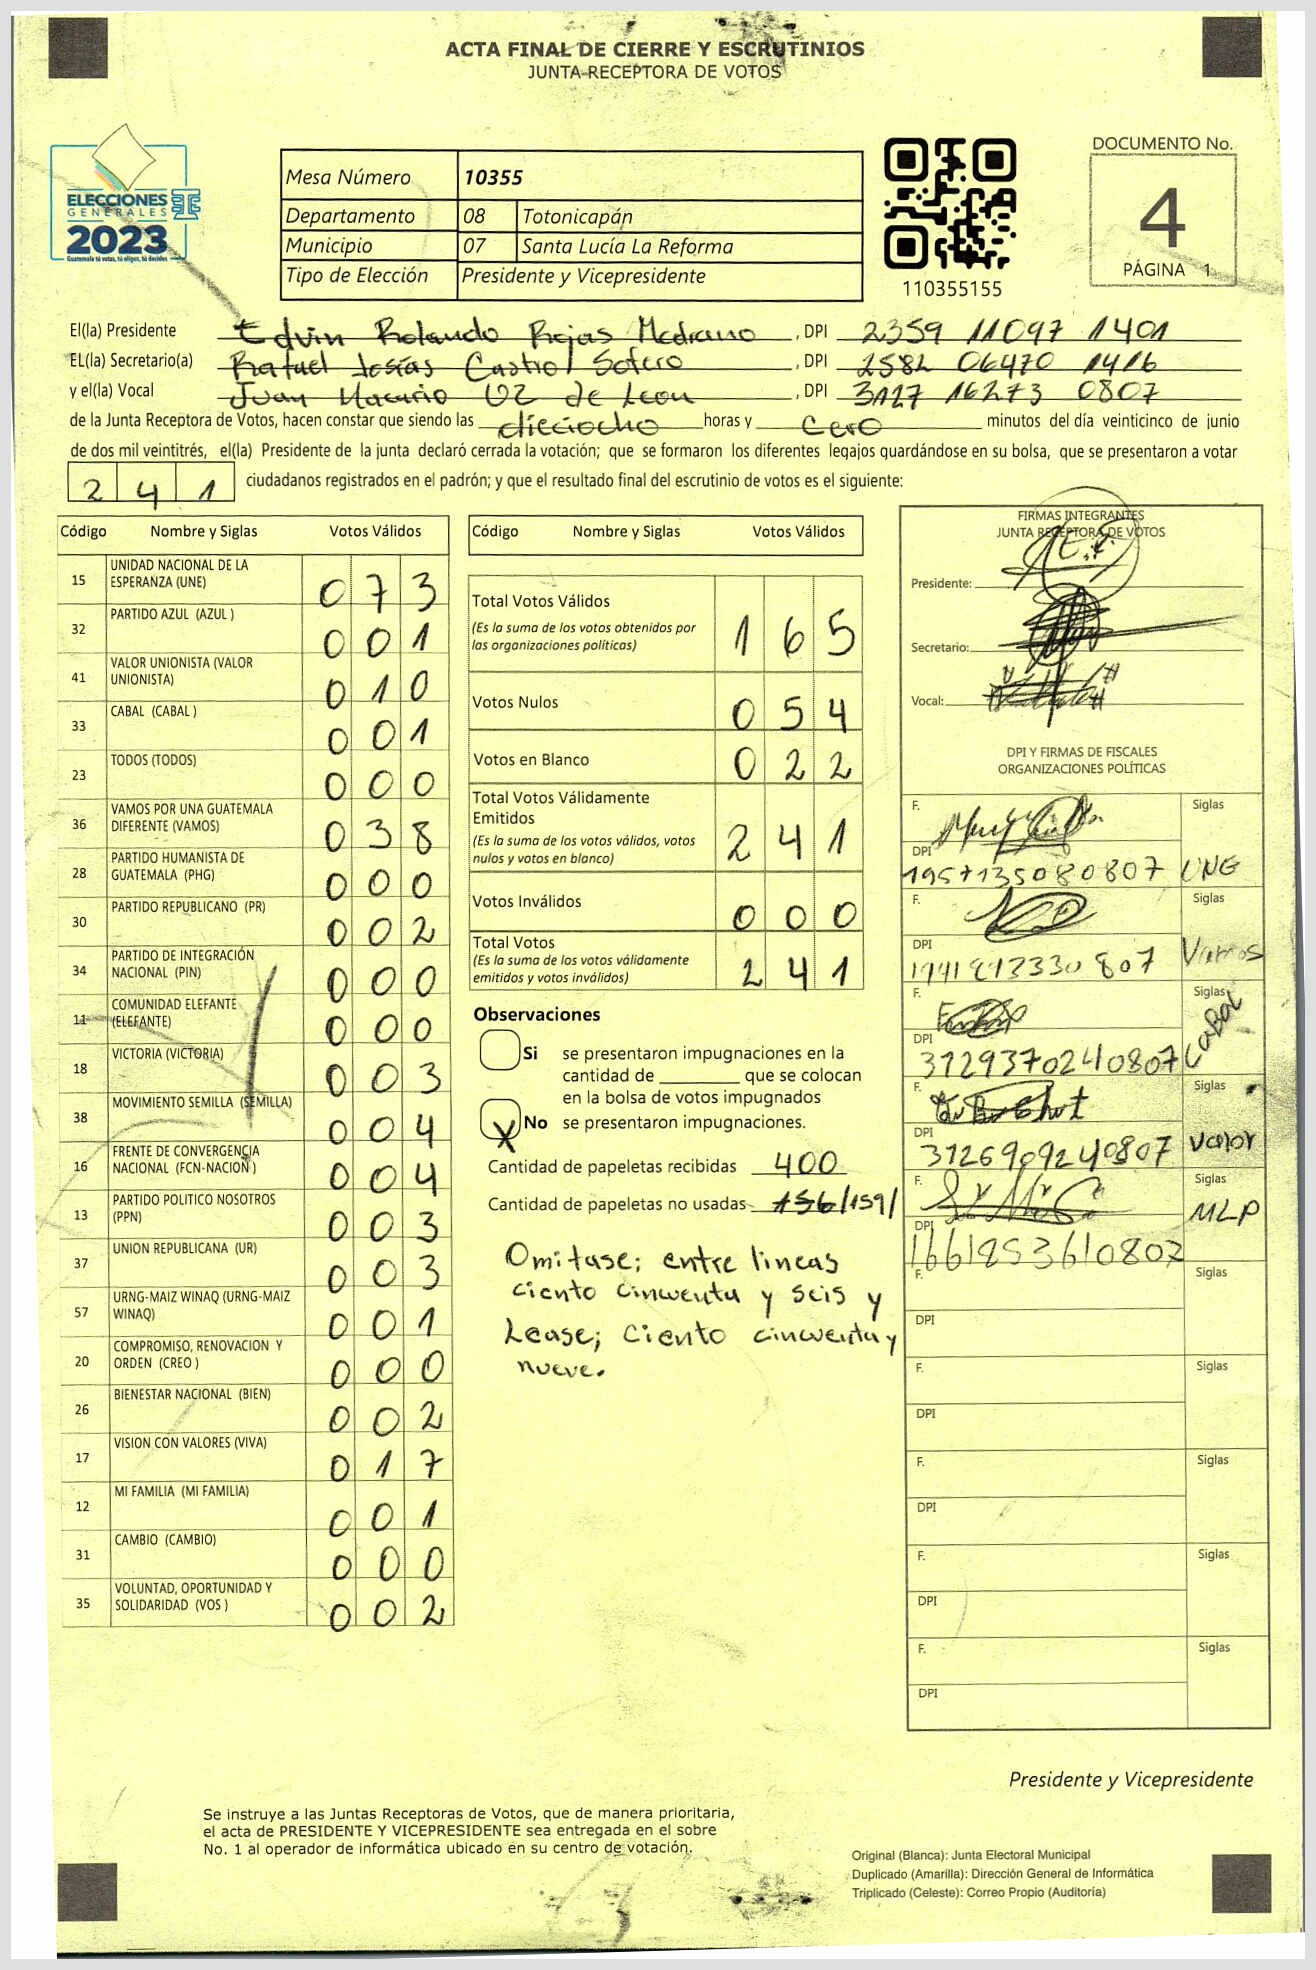 ACTA FINAL DE CIERRE Y ESCRUTINIOS
JUNTA RECEPTORA DE VOTOS
ELECCIONES
GENERALES
2023
Guatemala tú votas, tú eliges, tú decides
Mesa Número 10355
Departamento 08 Totonicapán
Municipio 07 Santa Lucía La Reforma
Tipo de Elección Presidente y Vicepresidente
110355155
DOCUMENTO No.
4
PÁGINA 1
El(la) Presidente Edvin Rolando Rojas Medrano, DPI 2359 11097 1401
EL(la) Secretario(a) Rafael Josías Castro Sotero, DPI 2582 06470 1416
y el(la) Vocal Juan Macario UZ de Leon, DPI 3127 16273 0807
de la Junta Receptora de Votos, hacen constar que siendo las dieciocho horas y cero minutos del día veinticinco de junio
de dos mil veintitrés, el(la) Presidente de la junta declaró cerrada la votación; que se formaron los diferentes legajos guardándose en su bolsa, que se presentaron a votar
241 ciudadanos registrados en el padrón; y que el resultado final del escrutinio de votos es el siguiente:
Código Nombre y Siglas Votos Válidos
15 UNIDAD NACIONAL DE LA ESPERANZA (UNE) 073
32 PARTIDO AZUL (AZUL ) 001
41 VALOR UNIONISTA (VALOR UNIONISTA) 010
33 CABAL (CABAL ) 001
23 TODOS (TODOS) 000
36 VAMOS POR UNA GUATEMALA DIFERENTE (VAMOS) 038
28 PARTIDO HUMANISTA DE GUATEMALA (PHG) 000
30 PARTIDO REPUBLICANO (PR) 002
34 PARTIDO DE INTEGRACIÓN NACIONAL (PIN) 000
11 COMUNIDAD ELEFANTE (ELEFANTE) 000
18 VICTORIA (VICTORIA) 003
38 MOVIMIENTO SEMILLA (SEMILLA) 004
16 FRENTE DE CONVERGENCIA NACIONAL (FCN-NACION ) 004
13 PARTIDO POLITICO NOSOTROS (PPN) 003
37 UNION REPUBLICANA (UR) 003
57 URNG-MAIZ WINAQ (URNG-MAIZ WINAQ) 001
20 COMPROMISO, RENOVACION Y ORDEN (CREO ) 000
26 BIENESTAR NACIONAL (BIEN) 002
17 VISION CON VALORES (VIVA) 017
12 MI FAMILIA (MI FAMILIA) 001
31 CAMBIO (CAMBIO) 000
35 VOLUNTAD, OPORTUNIDAD Y SOLIDARIDAD (VOS ) 002
Código Nombre y Siglas Votos Válidos
Total Votos Válidos 165
(Es la suma de los votos obtenidos por
las organizaciones políticas)
Votos Nulos 054
Votos en Blanco 022
Total Votos Válidamente
Emitidos 241
(Es la suma de los votos válidos, votos
nulos y votos en blanco)
Votos Inválidos 000
Total Votos 241
(Es la suma de los votos válidamente
emitidos y votos inválidos)
Observaciones
Si se presentaron impugnaciones en la
cantidad de ________ que se colocan
en la bolsa de votos impugnados
X No se presentaron impugnaciones.
Cantidad de papeletas recibidas 400
Cantidad de papeletas no usadas 156/159/
Omitase; entre lineas
ciento cincuenta y seis y
Lease; ciento cincuenta y
nueve.
FIRMAS INTEGRANTES
JUNTA RECEPTORA DE VOTOS
Presidente:
Secretario:
Vocal:
DPI Y FIRMAS DE FISCALES
ORGANIZACIONES POLÍTICAS
F. Siglas
DPI 1957135080807 UNE
F. Siglas
DPI Vamos
F. Siglas
DPI 3729370240807 Cabal
F. Siglas
DPI 3126909240807 Valor
F. Siglas
DPI 1661853610807 MLP
F. Siglas
DPI
F. Siglas
DPI
F. Siglas
DPI
F. Siglas
DPI
F. Siglas
DPI
Presidente y Vicepresidente
Se instruye a las Juntas Receptoras de Votos, que de manera prioritaria,
el acta de PRESIDENTE Y VICEPRESIDENTE sea entregada en el sobre
No. 1 al operador de informática ubicado en su centro de votación.
Original (Blanca): Junta Electoral Municipal
Duplicado (Amarilla): Dirección General de Informática
Triplicado (Celeste): Correo Propio (Auditoría)